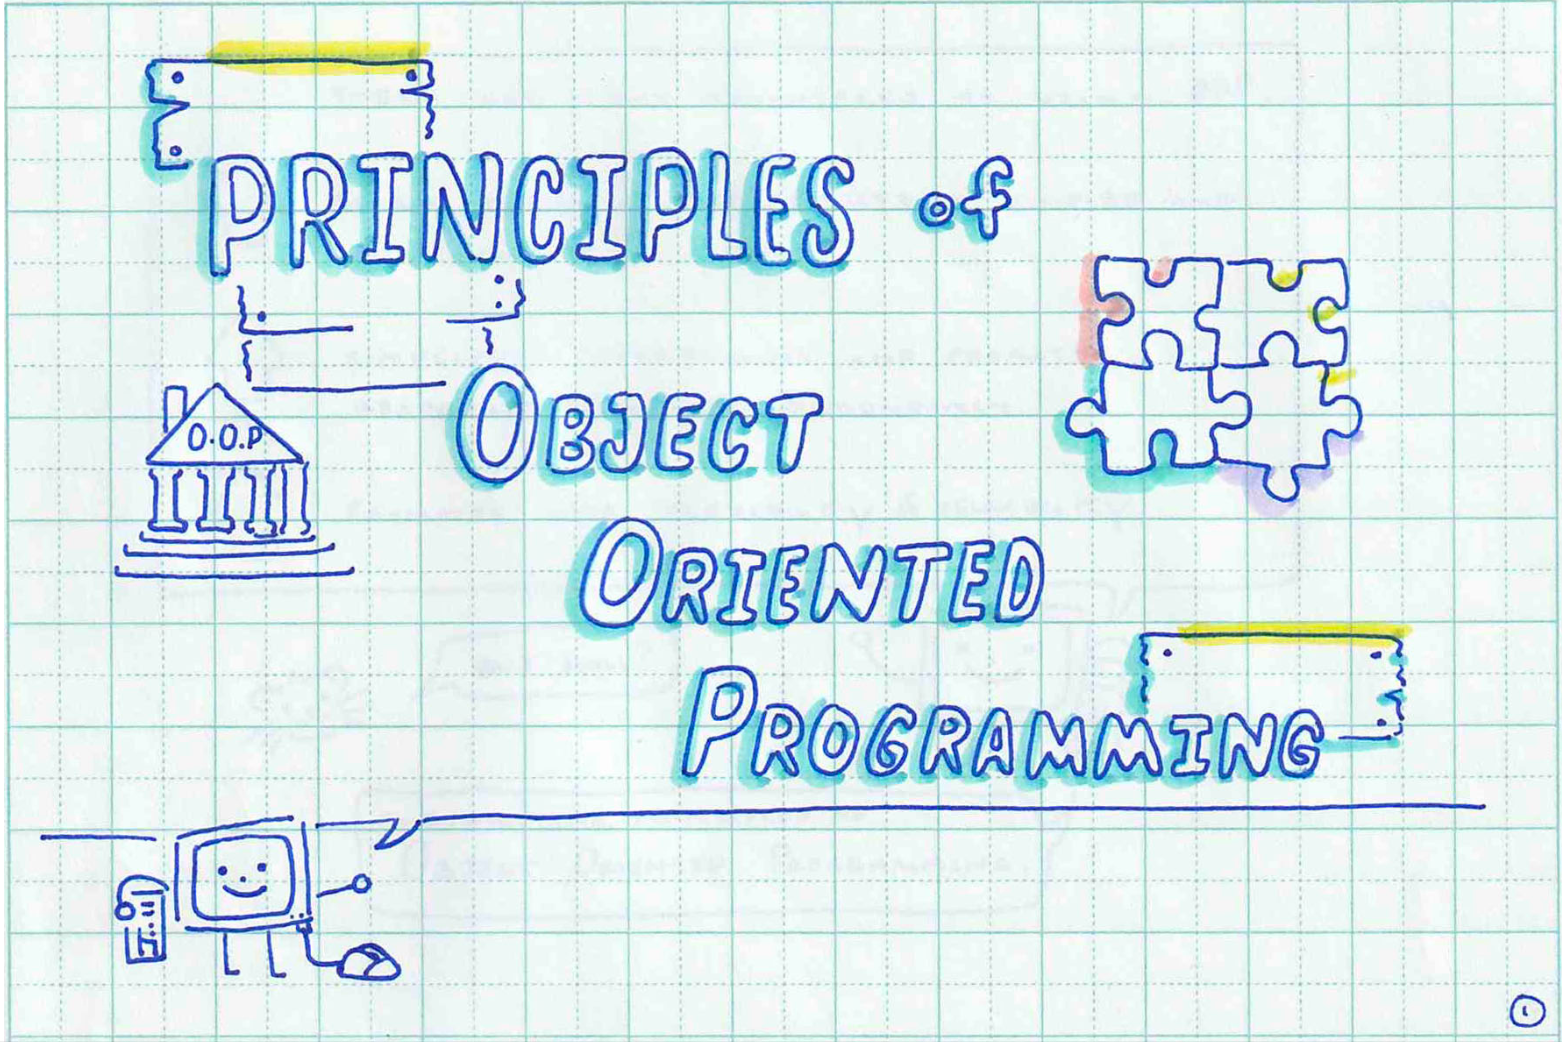 PRINCIPLES of
OBJECT
O.O.P
ORIENTED
PROGRAMMING
1